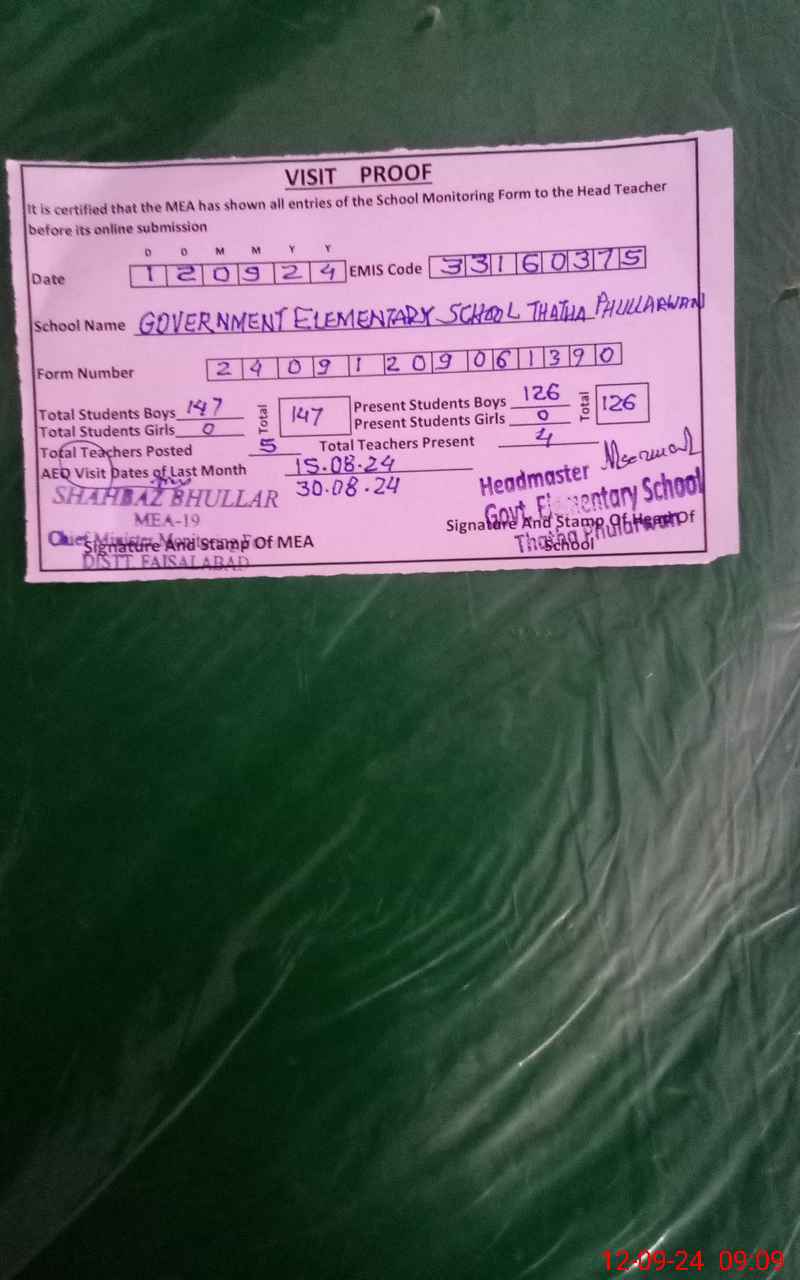 VISIT PROOF
It is certified that the MEA has shown all entries of the School Monitoring Form to the Head Teacher
before its online submission
D D M M Y Y
Date 1 2 0 9 2 4 EMIS Code 3 3 1 6 0 3 7 5
School Name GOVERNMENT ELEMENTARY SCHOOL THATHA PHULLARWAN
Form Number 2 4 0 9 1 2 0 9 0 6 1 3 9 0
Total Students Boys 147 Total 147 Present Students Boys 126 Total 126
Total Students Girls 0 Present Students Girls 0
Total Teachers Posted 5 Total Teachers Present 4
AEO Visit Dates of Last Month 15.08.24
30.08.24
SHAHBAZ BHULLAR
MEA-19
Chief Minister Monitoring
Signature And Stamp Of MEA
DISTT FAISALABAD
Headmaster
Govt. Elementary School
Thatha Phularwan
Signature And Stamp Of Head Of
School
12-09-24 09:09